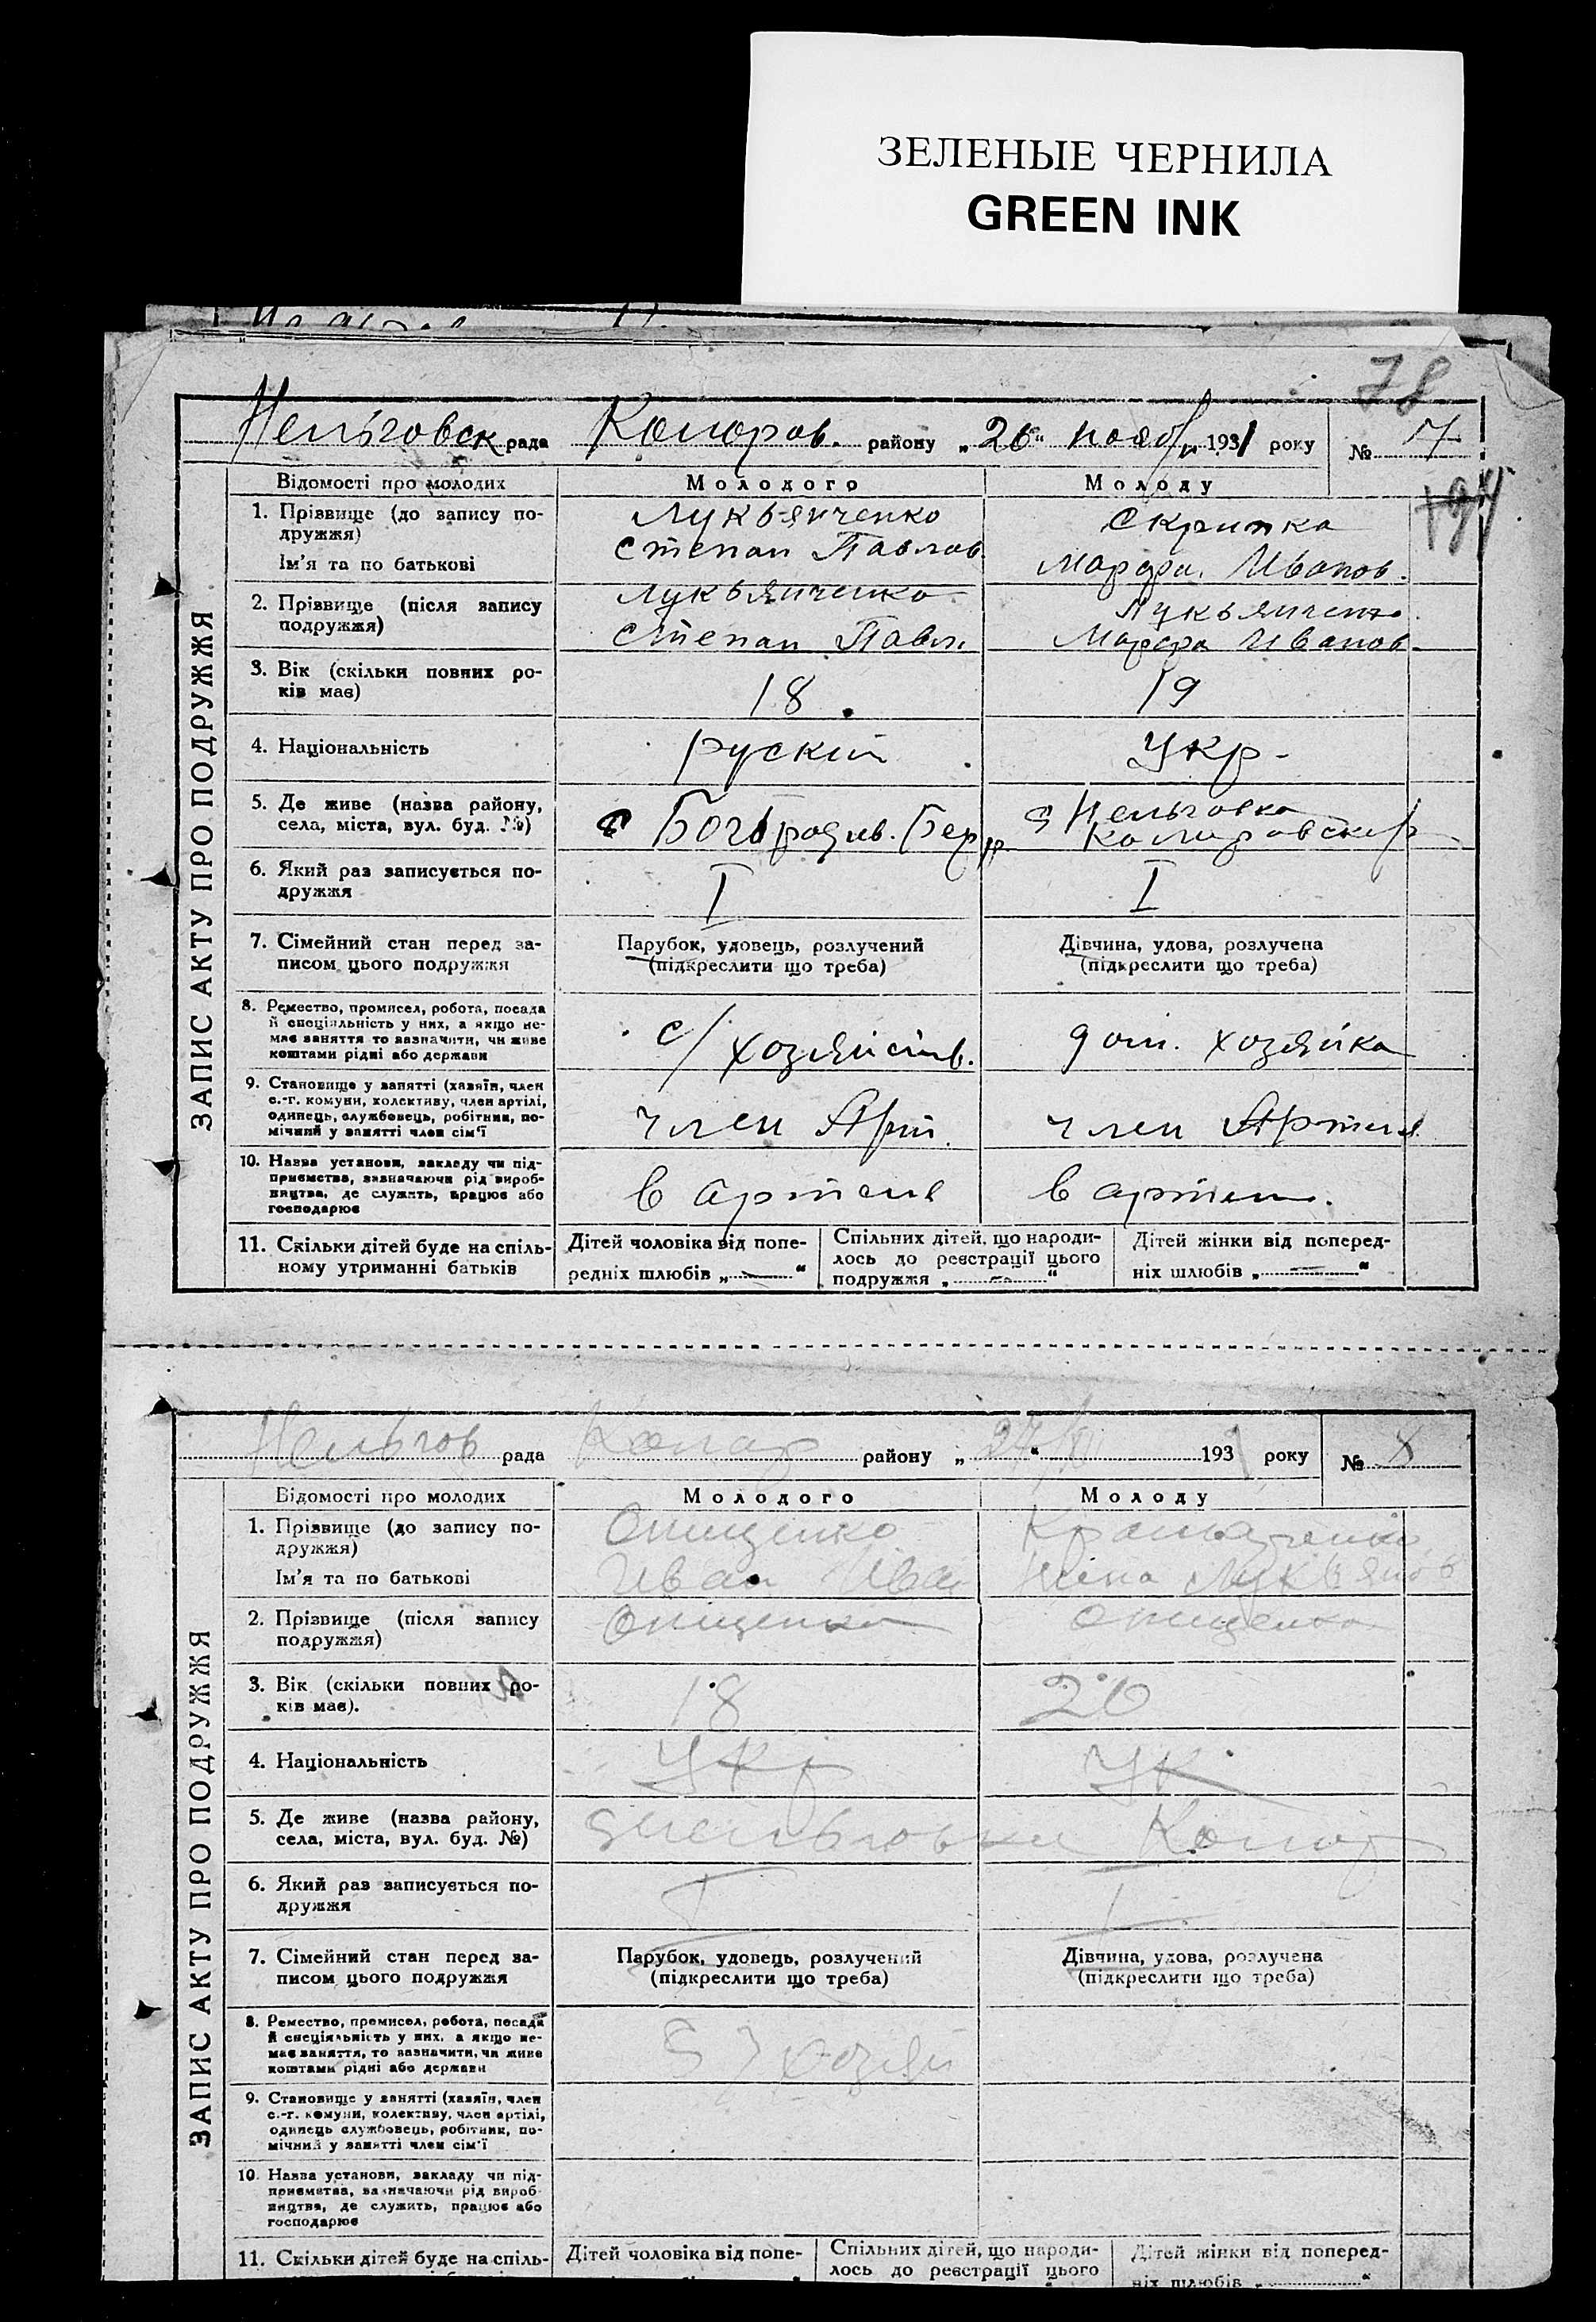 ЗЕЛЕНЫЕ ЧЕРНИЛА
GREEN INK
78
Нельговск рада Комаров. району „26“ нояб 1931 року № 7
194
Відомості про молодих Молодого Молоду
ЗАПИС АКТУ ПРО ПОДРУЖЖЯ
1. Прізвище (до запису по-
дружжя)
Ім'я та по батькові
Лукьянченко
Степан Павлов.
Скрипка
Марфа. Иванов.
2. Прізвище (після запису
подружжя)
Лукьянченко
Степан Павл.
Лукьянченко
Марфа Иванов.
3. Вік (скільки повних ро-
ків має)
18
19
4. Національність
рускій
Укр-
5. Де живе (назва району,
села, міста, вул. буд. №)
с Нельговка
6. Який раз записується по-
дружжя
I
I
7. Сімейний стан перед за-
писом цього подружжя
Парубок, удовець, розлучений
(підкреслити що треба)
Дівчина, удова, розлучена
(підкреслити що треба)
8. Ремество, промисел, робота, посада
й спеціяльність у них, а якщо не-
має заняття то зазначити, чи живе
коштами рідні або держави
с/хозяйств.
дом. хозяйка
9. Становище у занятті (хазяїн, член
с.-г. комуни, колективу, член артілі,
одинець, службовець, робітник, по-
мічний у занятті член сім'ї
член Арт.
член Артеля
10. Назва установи, закладу чи під-
приємства, зазначаючи рід вироб-
ництва, де служить, працює або
господарює
в артеле
в артели.
11. Скільки дітей буде на спіль-
ному утриманні батьків
Дітей чоловіка від попе-
редніх шлюбів „—“
Спільних дітей, що народи-
лось до реєстрації цього
подружжя „—“
Дітей жінки від поперед-
ніх шлюбів „—“
Нельгов рада Комар району „27/XII“ 1931 року № 8
Відомості про молодих Молодого Молоду
ЗАПИС АКТУ ПРО ПОДРУЖЖЯ
1. Прізвище (до запису по-
дружжя)
Ім'я та по батькові
Онищенко
Иван Ива
Лукьянов
2. Прізвище (після запису
подружжя)
Онищенко
Онищенко
3. Вік (скільки повних ро-
ків має).
18
20
4. Національність
Укр
Ук
5. Де живе (назва району,
села, міста, вул. буд. №)
Нельговки Комар
6. Який раз записується по-
дружжя
I
I
7. Сімейний стан перед за-
писом цього подружжя
Парубок, удовець, розлучений
(підкреслити що треба)
Дівчина, удова, розлучена
(підкреслити що треба)
8. Ремество, промисел, робота, посада
й спеціяльність у них, а якщо не-
має заняття, то зазначити, чи живе
коштами рідні або держави
хозяй
9. Становище у занятті (хазяїн, член
с.-г. комуни, колективу, член артілі,
одинець службовець, робітник, по-
мічний у занятті член сім'ї
10. Назва установи, закладу чи під-
приємства, зазначаючи рід вироб-
ництва, де служить, працює або
господарює
11. Скільки дітей буде на спіль-
Дітей чоловіка від попе-
Спільних дітей, що народи-
лось до реєстрації цього
Дітей жінки від поперед-
ніх шлюбів „